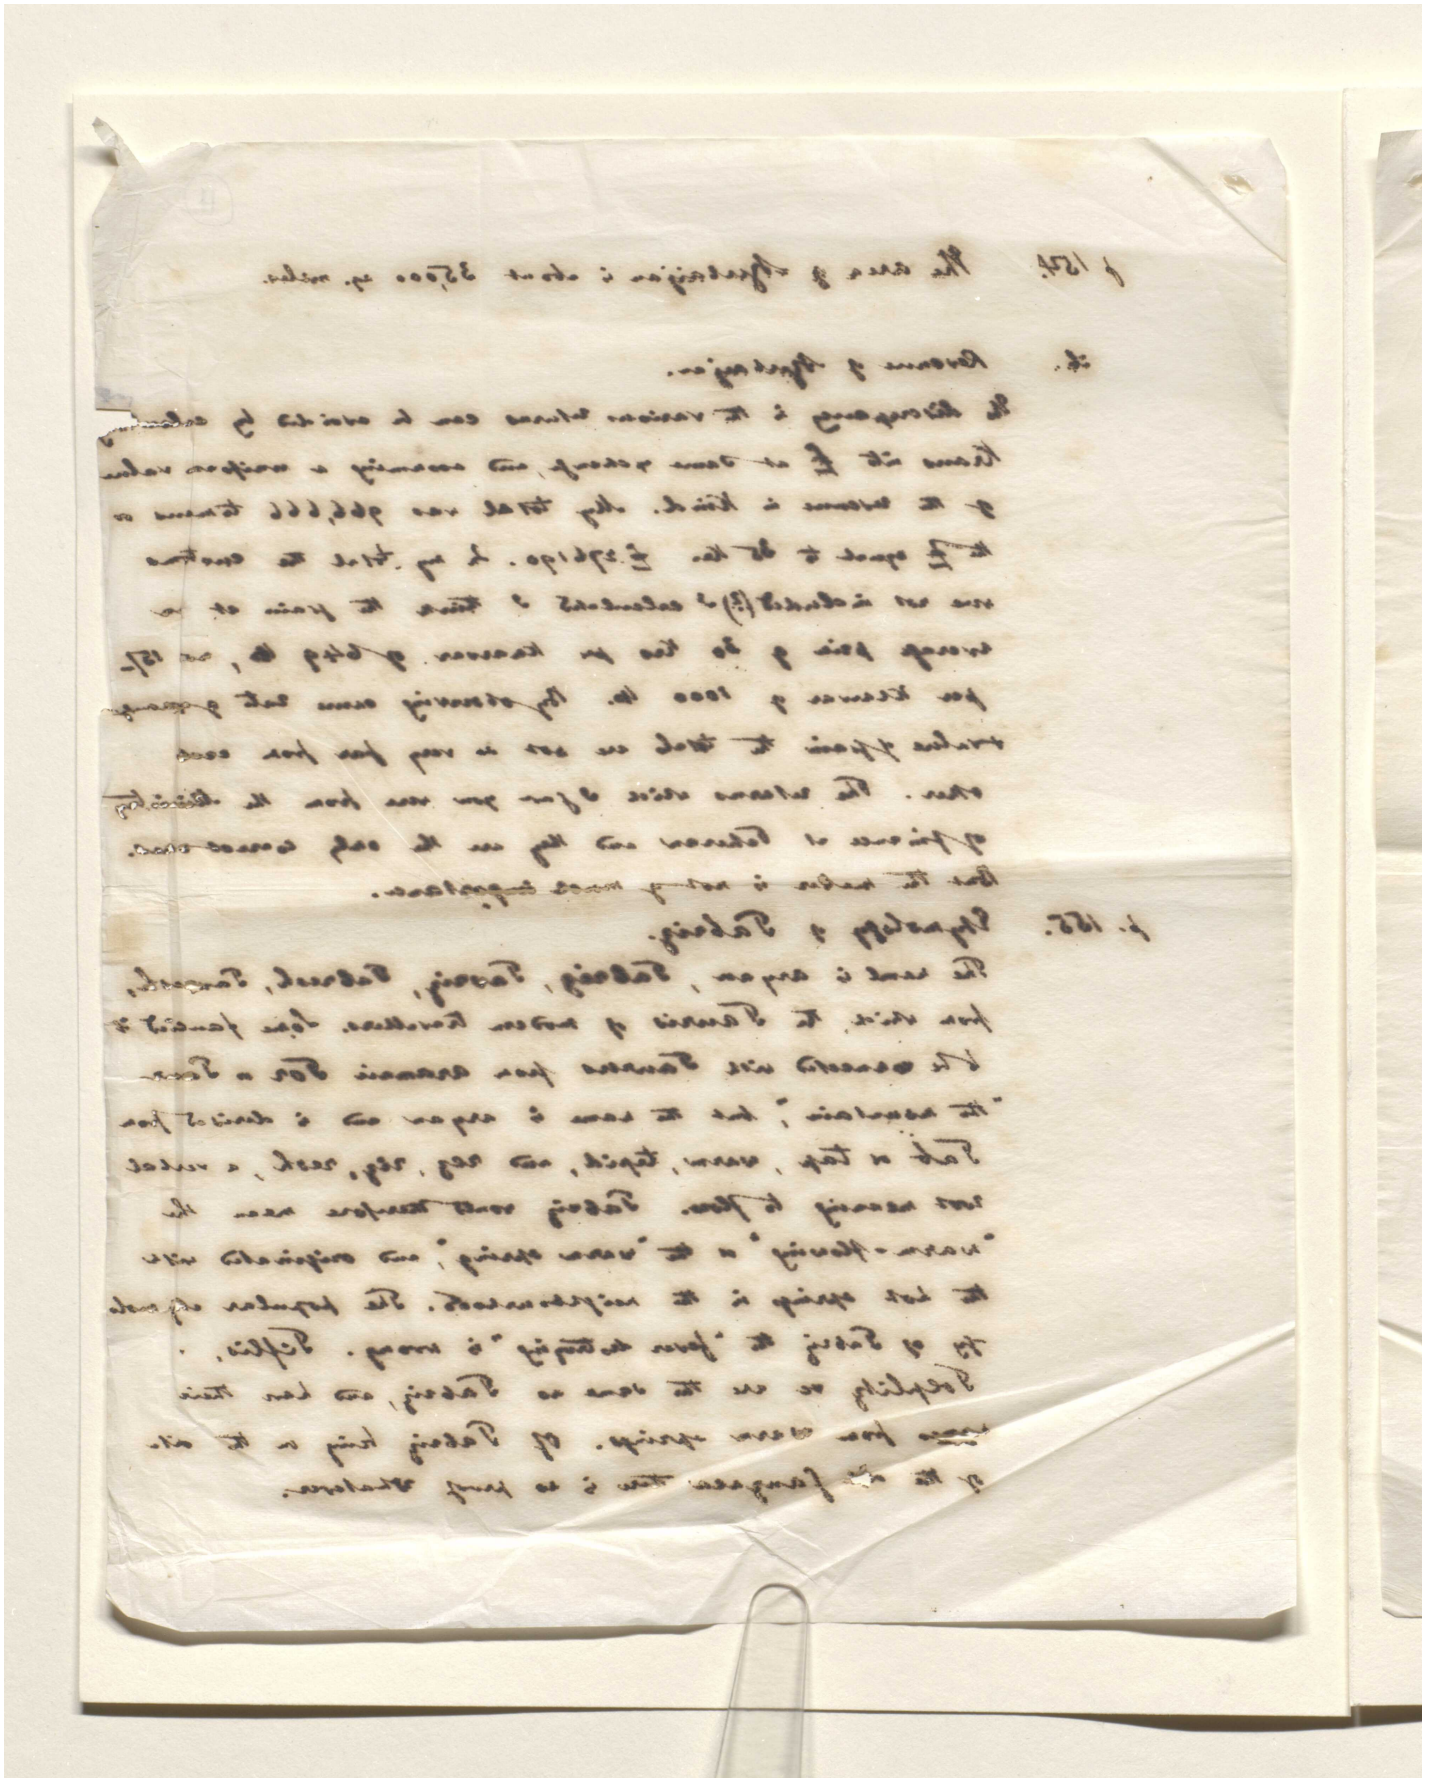 11
p 154. The area of Azerbaijan is about 35,000 sq. miles.
ib. Revenue of Azerbaijan.
The discrepancy in the various returns can be avoided by calculating
Krans into £ at same exchange, and assuming a uniform value
of the revenue in Kind. My total was 966,666 tomans or
the £ equal to 35 kr. £ 276190. In my total the customs
were not included (?) I calculated I think the grain at an
average price of 30 krs per kharvar of 649 lb, or
per kharvar of 1000 lb. By observing same rate of exchange
+ value of grain the totals are not so very far from each
other. The returns which I gave you were from the Ministry
of finance at Teheran and they are the only correct ones.
But the matter is not of much importance.
p. 155. Etymology of Tabriz.
The name is aryan, Tabriz, Tavriz, Tabresh, Tavresh,
from which, the Tauris of modern travellers. Some fancied it
to be connected with Taurus from aramaic Tor or Tour
"the mountain", but the name is aryan and is derived from
Tab or tap, warm, tepid, and rez, riz, resh, a verbal
root meaning to flow. Tabriz would therefore mean the
"warm-flowing" or the "warm spring", and originated with
the hot springs in the neighbourhood. The popular etymolo
gy of Tabriz the "fever destroying" is wrong. Tiflis,
Toeplitz etc are the same as Tabriz, and have their
names from warm springs. Of Tabriz being on the site
of the old Ganzaca there is no proof whatever.